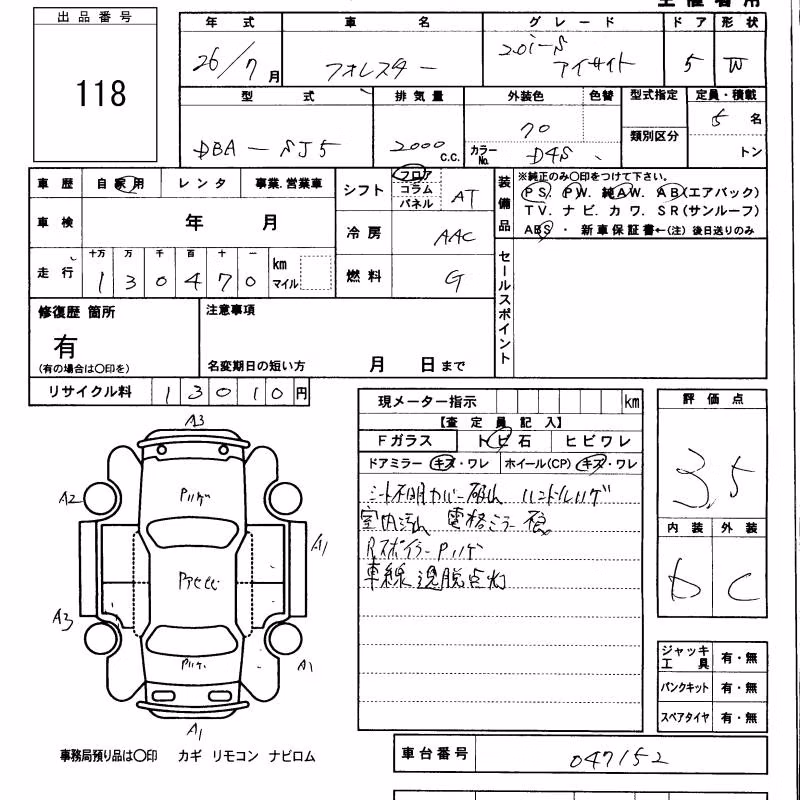 出品番号
118
年式 車名 グレード ドア 形状
26/7月 フォレスター 2.0i-S アイサイト 5 W
型式 排気量 外装色 色替 型式指定 定員・積載
DBA-SJ5 2000 C.C. 70 カラーNo. D4S 類別区分 5名 トン
車歴 自家用 レンタ 事業.営業車
車検 年 月
走行 十万 万 千 百 十 一
130470 km マイル
シフト フロア コラム パネル AT
冷房 AAC
燃料 G
装備品 ※純正のみ〇印をつけて下さい。
PS. PW. 純AW. AB(エアバック)
TV. ナビ. カワ. SR(サンルーフ)
ABS ・ 新車保証書←(注) 後日送りのみ
セールスポイント
修復歴 箇所
有
(有の場合は〇印を)
注意事項
名変期日の短い方 月 日まで
リサイクル料 13010円
現メーター指示 km
【査定員記入】
Fガラス トビ石 ヒビワレ
ドアミラー キズ・ワレ ホイール(CP) キズ・ワレ
ハンドルハゲ
室内汚れ 電格ミラー
RスポイラーPハゲ
車線逸脱点灯
評価点
3.5
内装 外装
b C
A3
A2
Pハゲ
A1
A3
A1
Pハゲ
A1
ジャッキ工具 有・無
パンクキット 有・無
スペアタイヤ 有・無
事務局預り品は〇印 カギ リモコン ナビロム
車台番号 047152